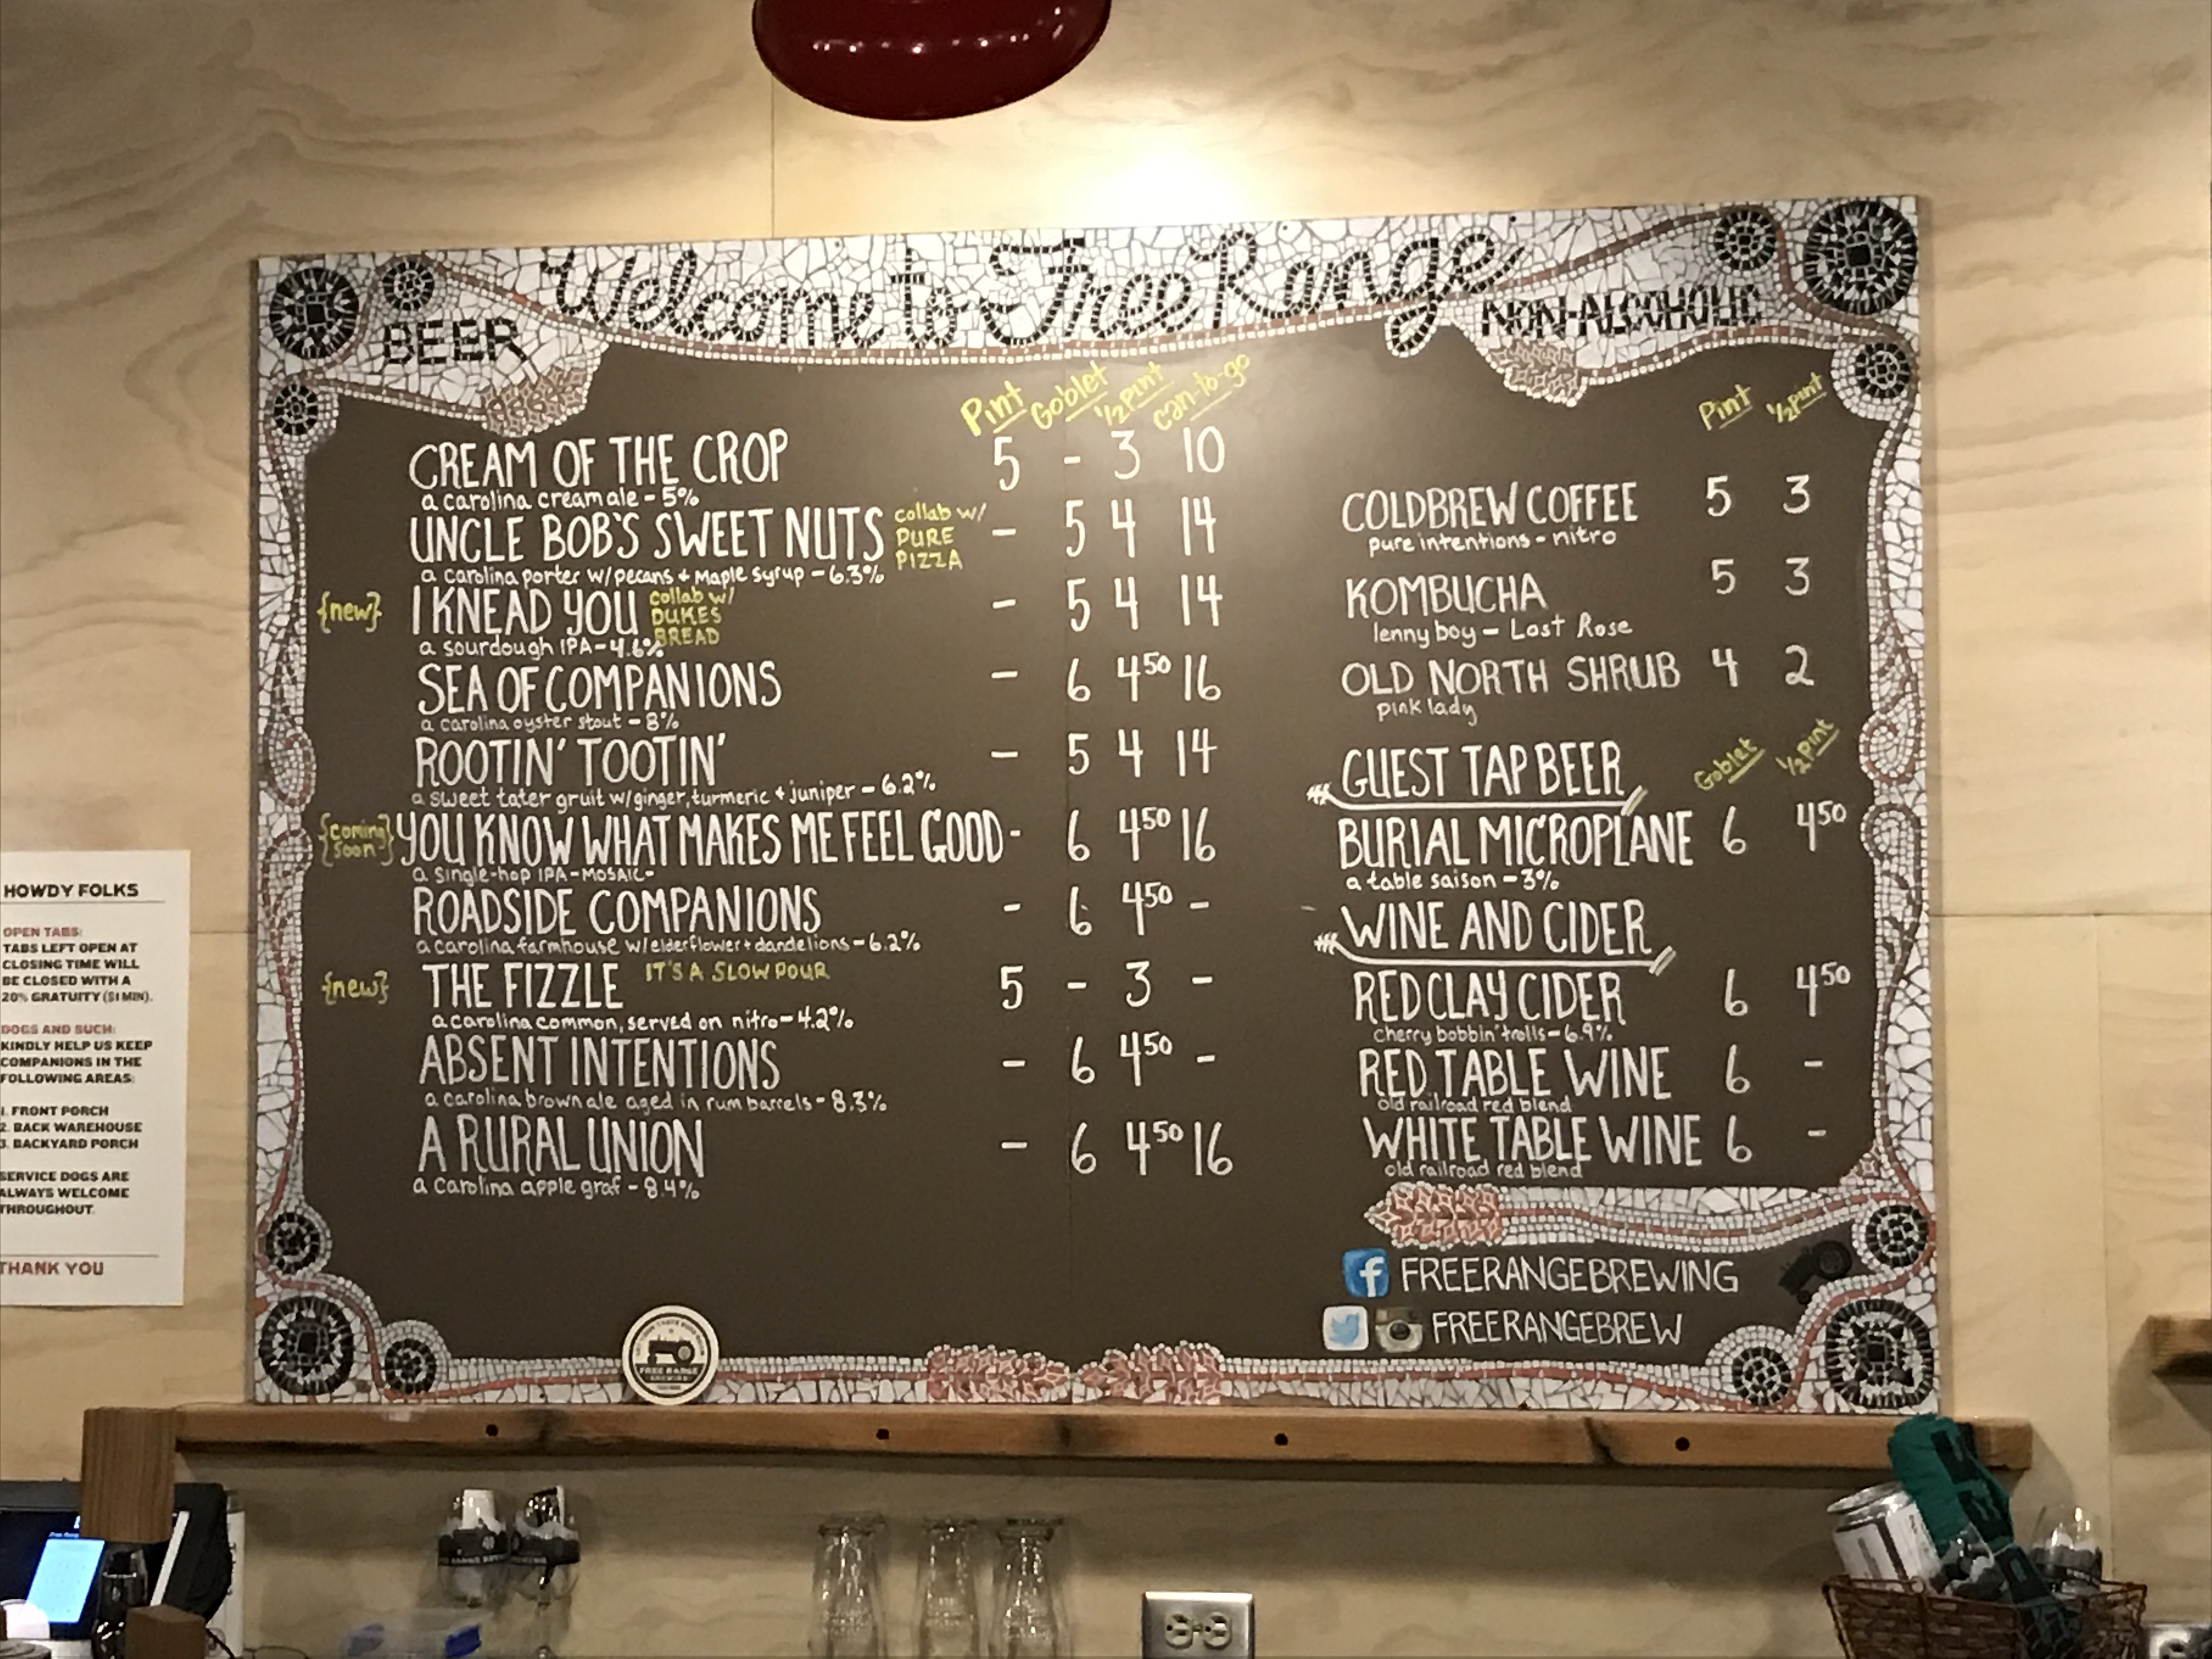 Welcome to Free Range
BEER
Pint Goblet ½ Pint Can-to-go
CREAM OF THE CROP 5 - 3 10
a carolina cream ale - 5%
UNCLE BOB'S SWEET NUTS collab w/ PURE PIZZA - 5 4 14
a carolina porter w/pecans + Maple Syrup - 6.3%
{new} I KNEAD YOU collab w/ DUKES BREAD - 5 4 14
a sourdough IPA - 4.6%
SEA OF COMPANIONS - 6 4⁵⁰ 16
a carolina oyster stout - 8%
ROOTIN' TOOTIN' - 5 4 14
a sweet tater gruit w/ginger, turmeric + juniper - 6.2%
{coming soon} YOU KNOW WHAT MAKES ME FEEL GOOD - 6 4⁵⁰ 16
a single-hop IPA - MOSAIC -
ROADSIDE COMPANIONS - 6 4⁵⁰ -
a carolina farmhouse w/elderflower + dandelions - 6.2%
{new} THE FIZZLE IT'S A SLOW POUR 5 - 3 -
a carolina common, served on nitro - 4.2%
ABSENT INTENTIONS - 6 4⁵⁰ -
a carolina brown ale aged in rum barrels - 8.3%
A RURAL UNION - 6 4⁵⁰ 16
a carolina apple graf - 8.4%
NON-ALCOHOLIC
Pint ½ pint
COLDBREW COFFEE 5 3
pure intentions - nitro
KOMBUCHA 5 3
lenny boy - Lost Rose
OLD NORTH SHRUB 4 2
pink lady
GUEST TAP BEER Goblet ½ pint
BURIAL MICROPLANE 6 4⁵⁰
a table saison - 3%
WINE AND CIDER
RED CLAY CIDER 6 4⁵⁰
cherry bobbin' trolls - 6.9%
RED TABLE WINE 6 -
old railroad red blend
WHITE TABLE WINE 6 -
old railroad red blend
FREERANGEBREWING
FREERANGEBREW
FREE RANGE
BREWING
HOWDY FOLKS
OPEN TABS:
TABS LEFT OPEN AT
CLOSING TIME WILL
BE CLOSED WITH A
20% GRATUITY ($1 MIN).
DOGS AND SUCH:
KINDLY HELP US KEEP
COMPANIONS IN THE
FOLLOWING AREAS:
1. FRONT PORCH
2. BACK WAREHOUSE
3. BACKYARD PORCH
SERVICE DOGS ARE
ALWAYS WELCOME
THROUGHOUT.
THANK YOU